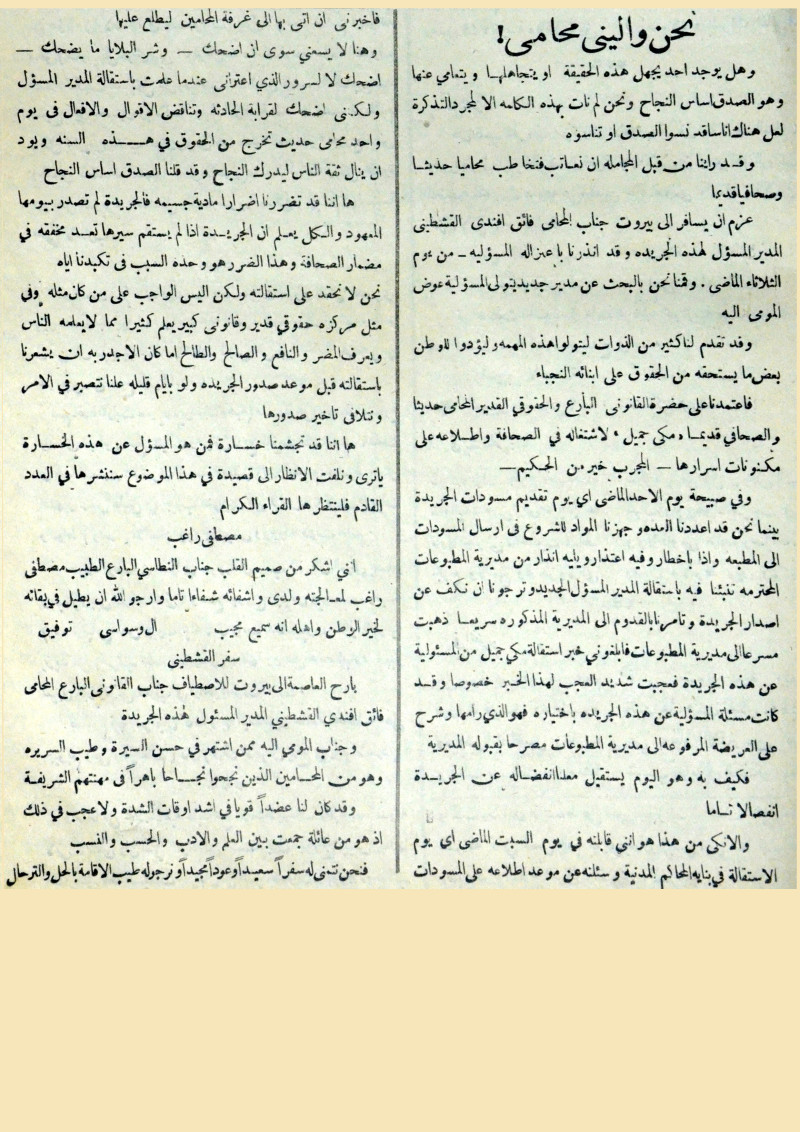 نحن واليني محامى!
وهل يوجد احد يجهل هذه الحقيقة او يتجاهلها و يتعامي عنها
وهو الصدق اساس النجاح ونحن لم نات بهذه الكلمه الا لمجرد التذكرة
لعل هناك اناسا قد نسوا الصدق او تناسوه
وقد راينا من قبل المجامله ان نعاتب فنخاطب محاميا حديثا
وصحافيا قديما
عزم ان يسافر الى بيروت جناب المحامى فائق افندى القشطينى
المدير المسؤل لهذه الجريده وقد انذرنا باعتزاله المسؤليه ــ من يوم
الثلاثاء الماضى . وقمنا نحن بالبحث عن مدير جديد يتولى المسؤلية عوض
المومى اليه
وقد تقدم لنا كثير من الذوات ليتولوا هذه المهمه وليؤدوا للوطن
بعض ما يستحقه من الحقوق على ابنائه النجباء
فاعتمدنا على حضرة القانونى البارع والحقوقي القدير المحامى حديثا
والصحافي قديما «مكى جميل» لاشتغاله في الصحافة واطلاعه على
مكنونات اسرارها ــ المجرب خير من الحكيم ــ
وفي صبيحة يوم الاحد الماضى اي يوم تقديم مسودات الجريدة
بينما نحن قد اعددنا العده وجهزنا المواد للشروع فى ارسال المسودات
الى المطبعه واذا باخطار وفيه اعتذار ويليه انذار من مديرية المطبوعات
المحترمه تنبئنا فيه باستقالة المدير المسؤل الجديد وترجونا ان نكف عن
اصدار الجريدة و تامرنا بالقدوم الى المديرية المذكوره سريعا ذهبت
مسرعا الى مديرية المطبوعات فابلغوني خبر استقالة مكي جميل من المسئولية
عن هذه الجريدة فعجبت شديد العجب لهذا الخبر خصوصا وقد
كانت مسئلة المسؤلية عن هذه الجريده باختياره فهو الذي رامها وشرح
على العريضة المرفوعه الى مديرية المطبوعات مصرحا بقبوله المديرية
فكيف به وهو اليوم يستقيل معلنا انفضاله عن الجريدة
انفصالا تاما
والانكى من هذا هو انني قابلته في يوم السبت الماضى اي يوم
الاستقالة في بنايه المحاكم المدنية و سئلته عن موعد اطلاعه على المسودات
فاخبرنى ان اتى بها الى غرفة المحامين ليطلع عليها
وهنا لا يسعني سوى ان اضحك ــ وشر البلايا ما يضحك ــ
اضحك لا لسرور الذي اعترانى عندما علمت باستقالة المدير المسؤل
ولكننى اضحك لغرابة الحادثه وتناقض الاقوال والافعال فى يوم
واحد محامى حديث تخرج من الحقوق في هذه السنه ويود
ان ينال ثقة الناس ليدرك النجاح وقد قلنا الصدق اساس النجاح
ها اننا قد تضررنا اضرارا مادية جسيمه فالجريدة لم تصدر بيومها
المعهود والكل يعلم ان الجريدة اذا لم يستقم سيرها تعد مخفقه في
مضمار الصحافة وهذا الضرر هو وحده السبب فى تكبدنا اياه
نحن لا نحقد على استقالته ولكن اليس الواجب على من كان مثله وفي
مثل مركزه حقوقي قدير وقانونى كبير يعلم كثيرا مما لا يعلمه الناس
ويعرف المضر والنافع والصالح والطالح اما كان الاجدر به ان يشعرنا
باستقالته قبل موعد صدور الجريده ولو بايام قليله علنا نتصبر في الامر
ونتلافى تاخير صدورها
ها اننا قد تجشمنا خسارة فمن هو المسؤل عن هذه الخسارة
ياترى ونلفت الانظار الى قصيدة في هذا الموضوع سننشرها في العدد
القادم فلينتظرها القراء الكرام
مصطفى راغب
انى اشكر من صميم القلب جناب النطاسي البارع الطبيب مصطفى
راغب لمعالجته ولدى واشفائه شفاءا تاما وارجو الله ان يطيل في بقائه
لخير الوطن واهله انه سميع مجيب ال وسواسى توفيق
سفر القشطينى
بارح العاصمة الى بيروت للاصطياف جناب القانونى البارع المحامى
فائق افندي القشطيني المدير المسئول لهذه الجريدة
وجناب المومي اليه ممن اشتهر في حسن السيرة وطيب السريره
وهو من المحامين الذين نجحوا نجاحا باهراً فى مهنتهم الشريفة
وقد كان لنا عضداً قويا في اشد اوقات الشدة ولا عجب في ذلك
اذ هو من عائلة جمعت بين العلم والادب والحسب والنسب
فنحن نتمنى له سفراً سعيداً وعوداً مجيداً ونرجو له طيب الاقامة بالحل والترحال